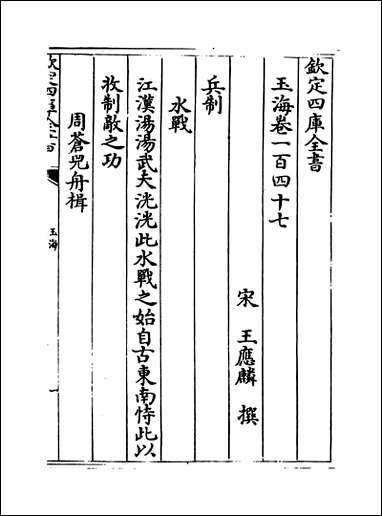 欽定四庫全書
玉海卷一百四十七
宋 王應麟 撰
兵制
水戰
江漢湯湯武夫洸洸此水戰之始自古東南恃此以
收制敵之功
周蒼兕舟楫
欽定四庫全書
玉海
一